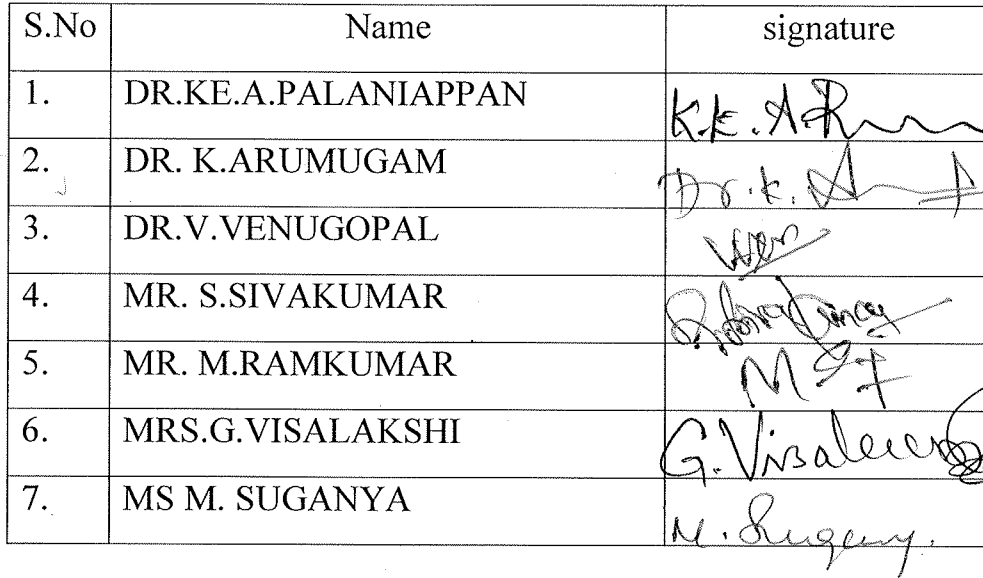 S.No Name signature
1. DR.KE.A.PALANIAPPAN K.E.A.P
2. DR. K.ARUMUGAM Dr.K.A
3. DR.V.VENUGOPAL
4. MR. S.SIVAKUMAR
5. MR. M.RAMKUMAR
6. MRS.G.VISALAKSHI G.Visal
7. MS M. SUGANYA M. Sugany.